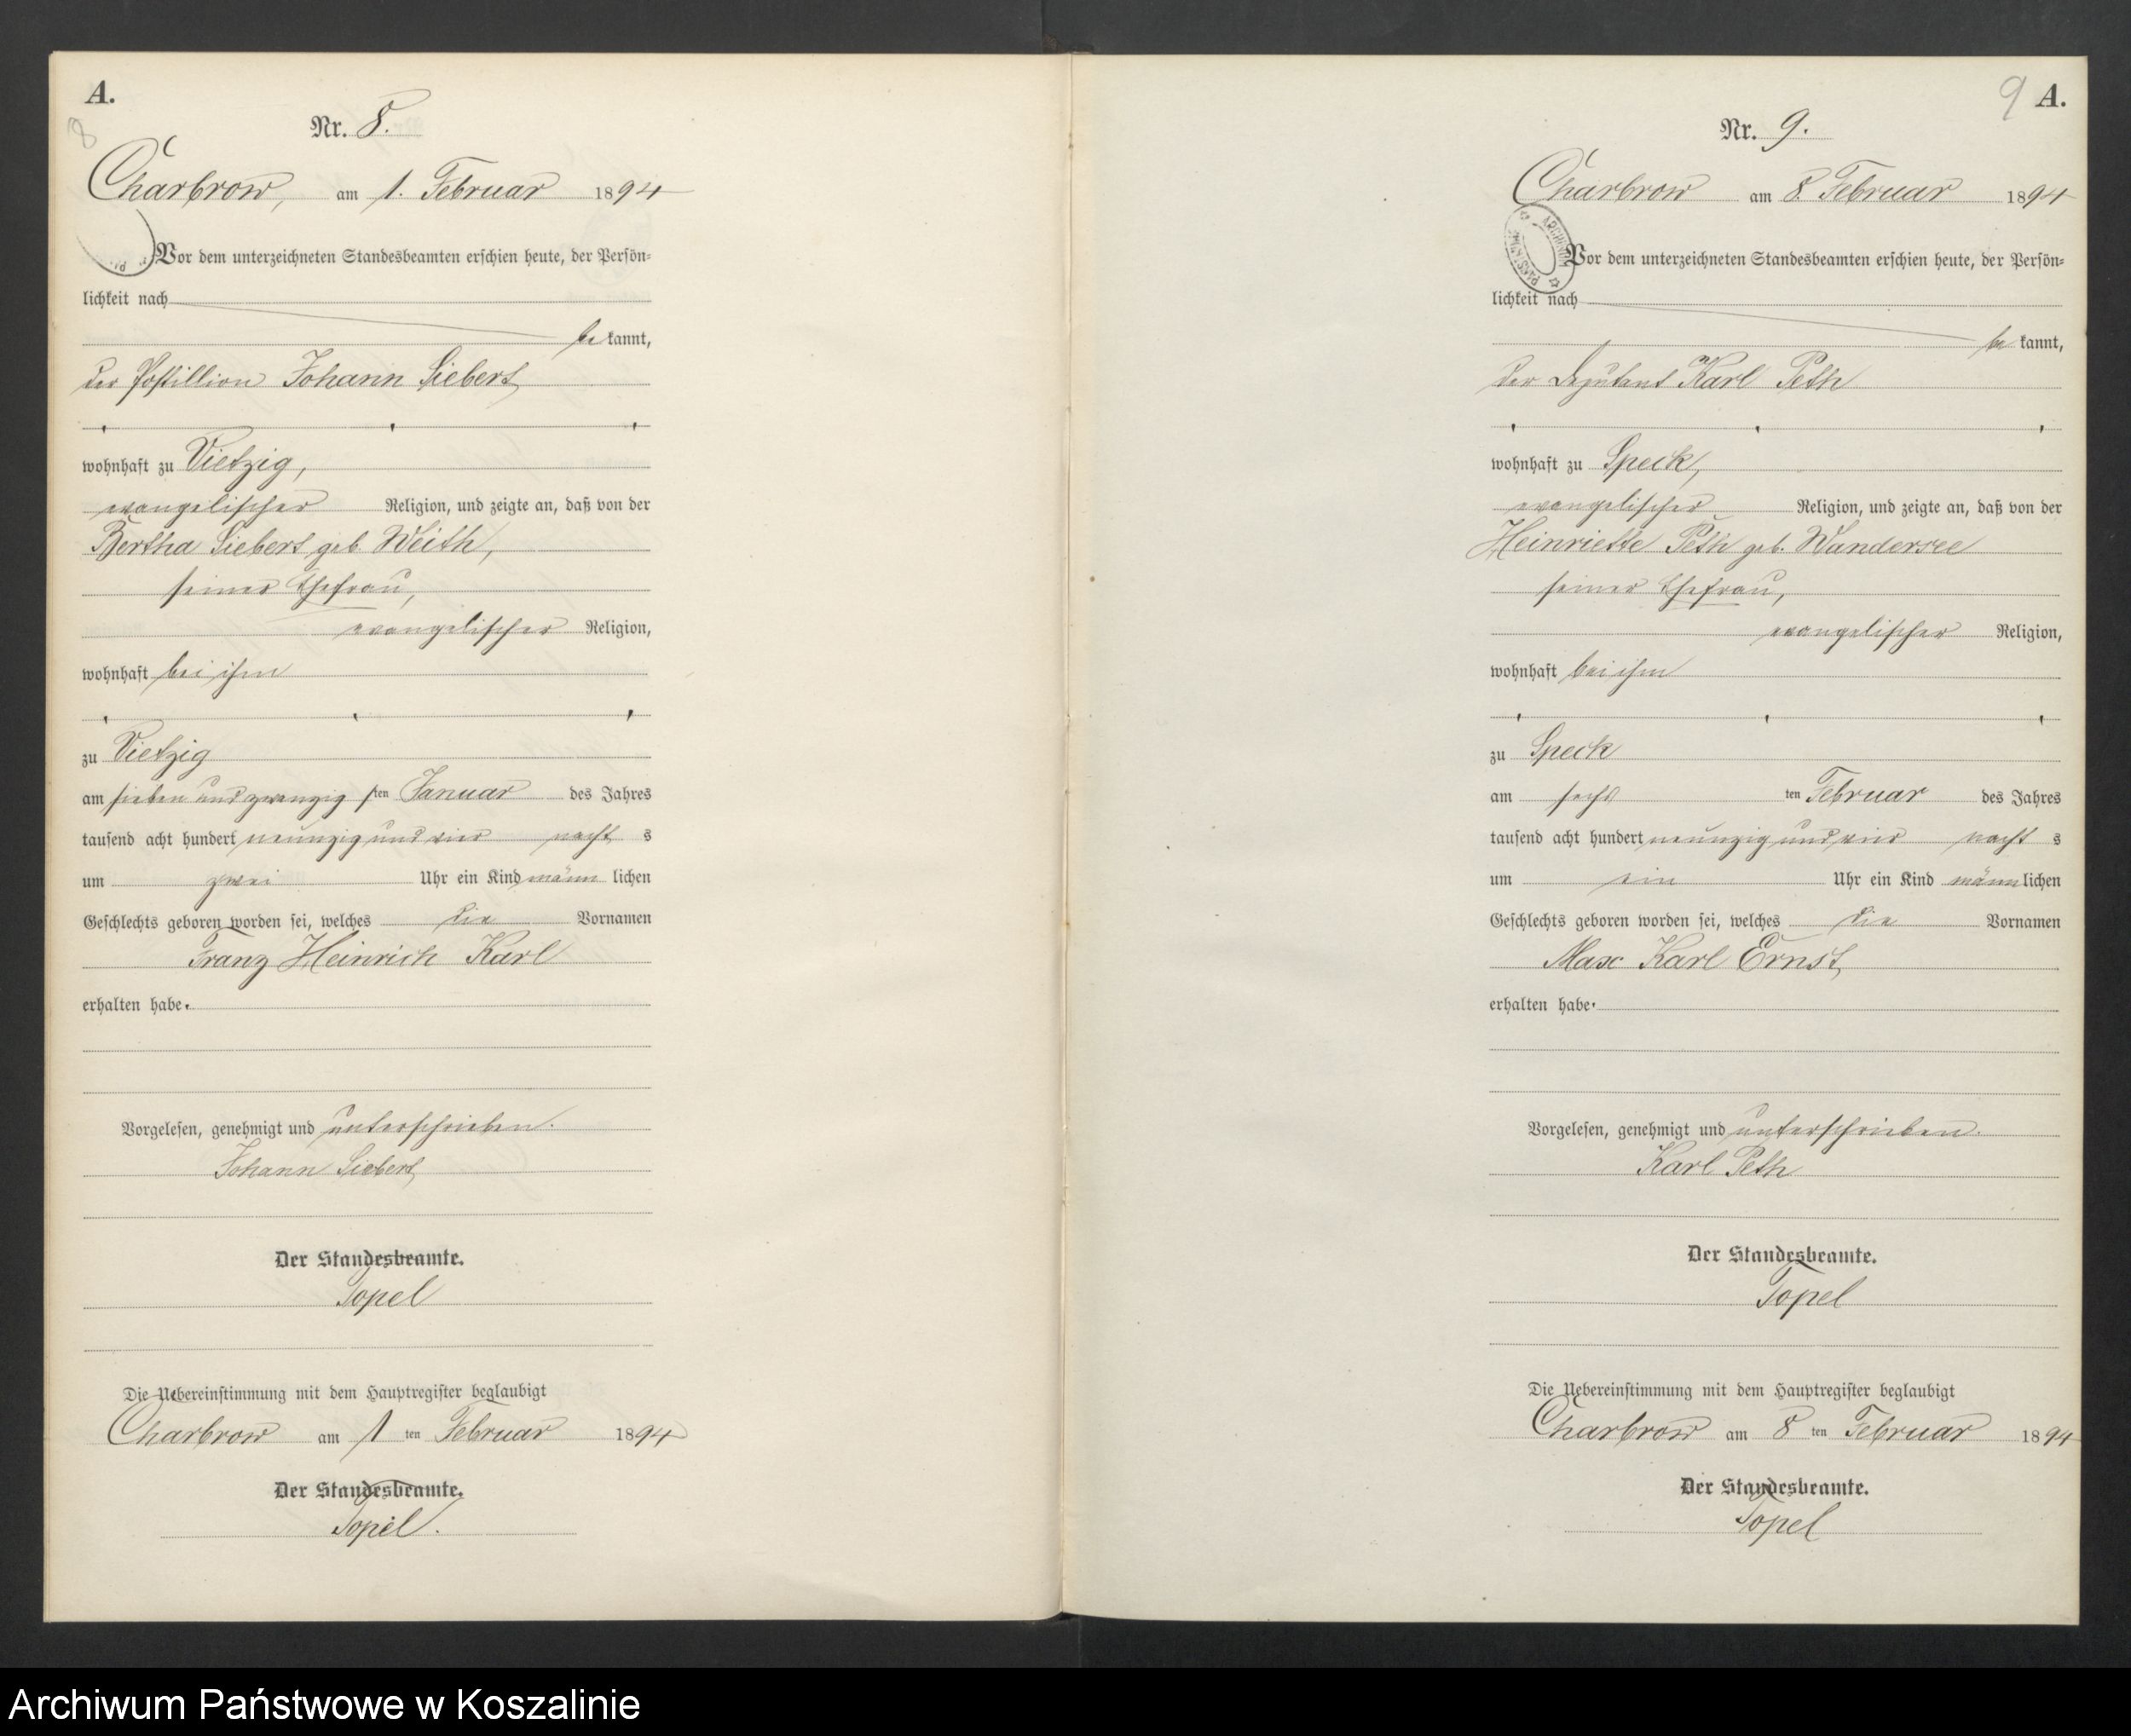 A.
8
Nr. 8.
Charbrow, am 1. Februar 1894
Vor dem unterzeichneten Standesbeamten erschien heute, der Persön-
lichkeit nach
be kannt,
der Postillion Johann Siebert
wohnhaft zu Vietzig,
evangelischer Religion, und zeigte an, daß von der
Bertha Siebert geb. Weith,
seiner Ehefrau,
evangelischer Religion,
wohnhaft bei ihm
zu Vietzig
am sieben und zwanzigsten Januar des Jahres
tausend acht hundert neunzig und vier nachts
um zwei Uhr ein Kind männlichen
Geschlechts geboren worden sei, welches die Vornamen
Franz Heinrich Karl
erhalten habe.
Vorgelesen, genehmigt und unterschrieben.
Johann Siebert
Der Standesbeamte.
Topel
Die Uebereinstimmung mit dem Hauptregister beglaubigt
Charbrow am 1 ten Februar 1894
Der Standesbeamte.
Topel.
9 A.
Nr. 9.
Charbrow am 8. Februar 1894
ARCHIWUM
Vor dem unterzeichneten Standesbeamten erschien heute, der Persön-
lichkeit nach
be kannt,
der Deputant Karl Peth
wohnhaft zu Speck,
evangelischer Religion, und zeigte an, daß von der
Heinriette Peth geb. Wandersee
seiner Ehefrau,
evangelischer Religion,
wohnhaft bei ihm
zu Speck
am sechs ten Februar des Jahres
tausend acht hundert neunzig und vier nachts
um ein Uhr ein Kind männlichen
Geschlechts geboren worden sei, welches die Vornamen
Max Karl Ernst
erhalten habe.
Vorgelesen, genehmigt und unterschrieben.
Karl Peth
Der Standesbeamte.
Topel
Die Uebereinstimmung mit dem Hauptregister beglaubigt
Charbrow am 8 ten Februar 1894
Der Standesbeamte.
Topel
Archiwum Państwowe w Koszalinie